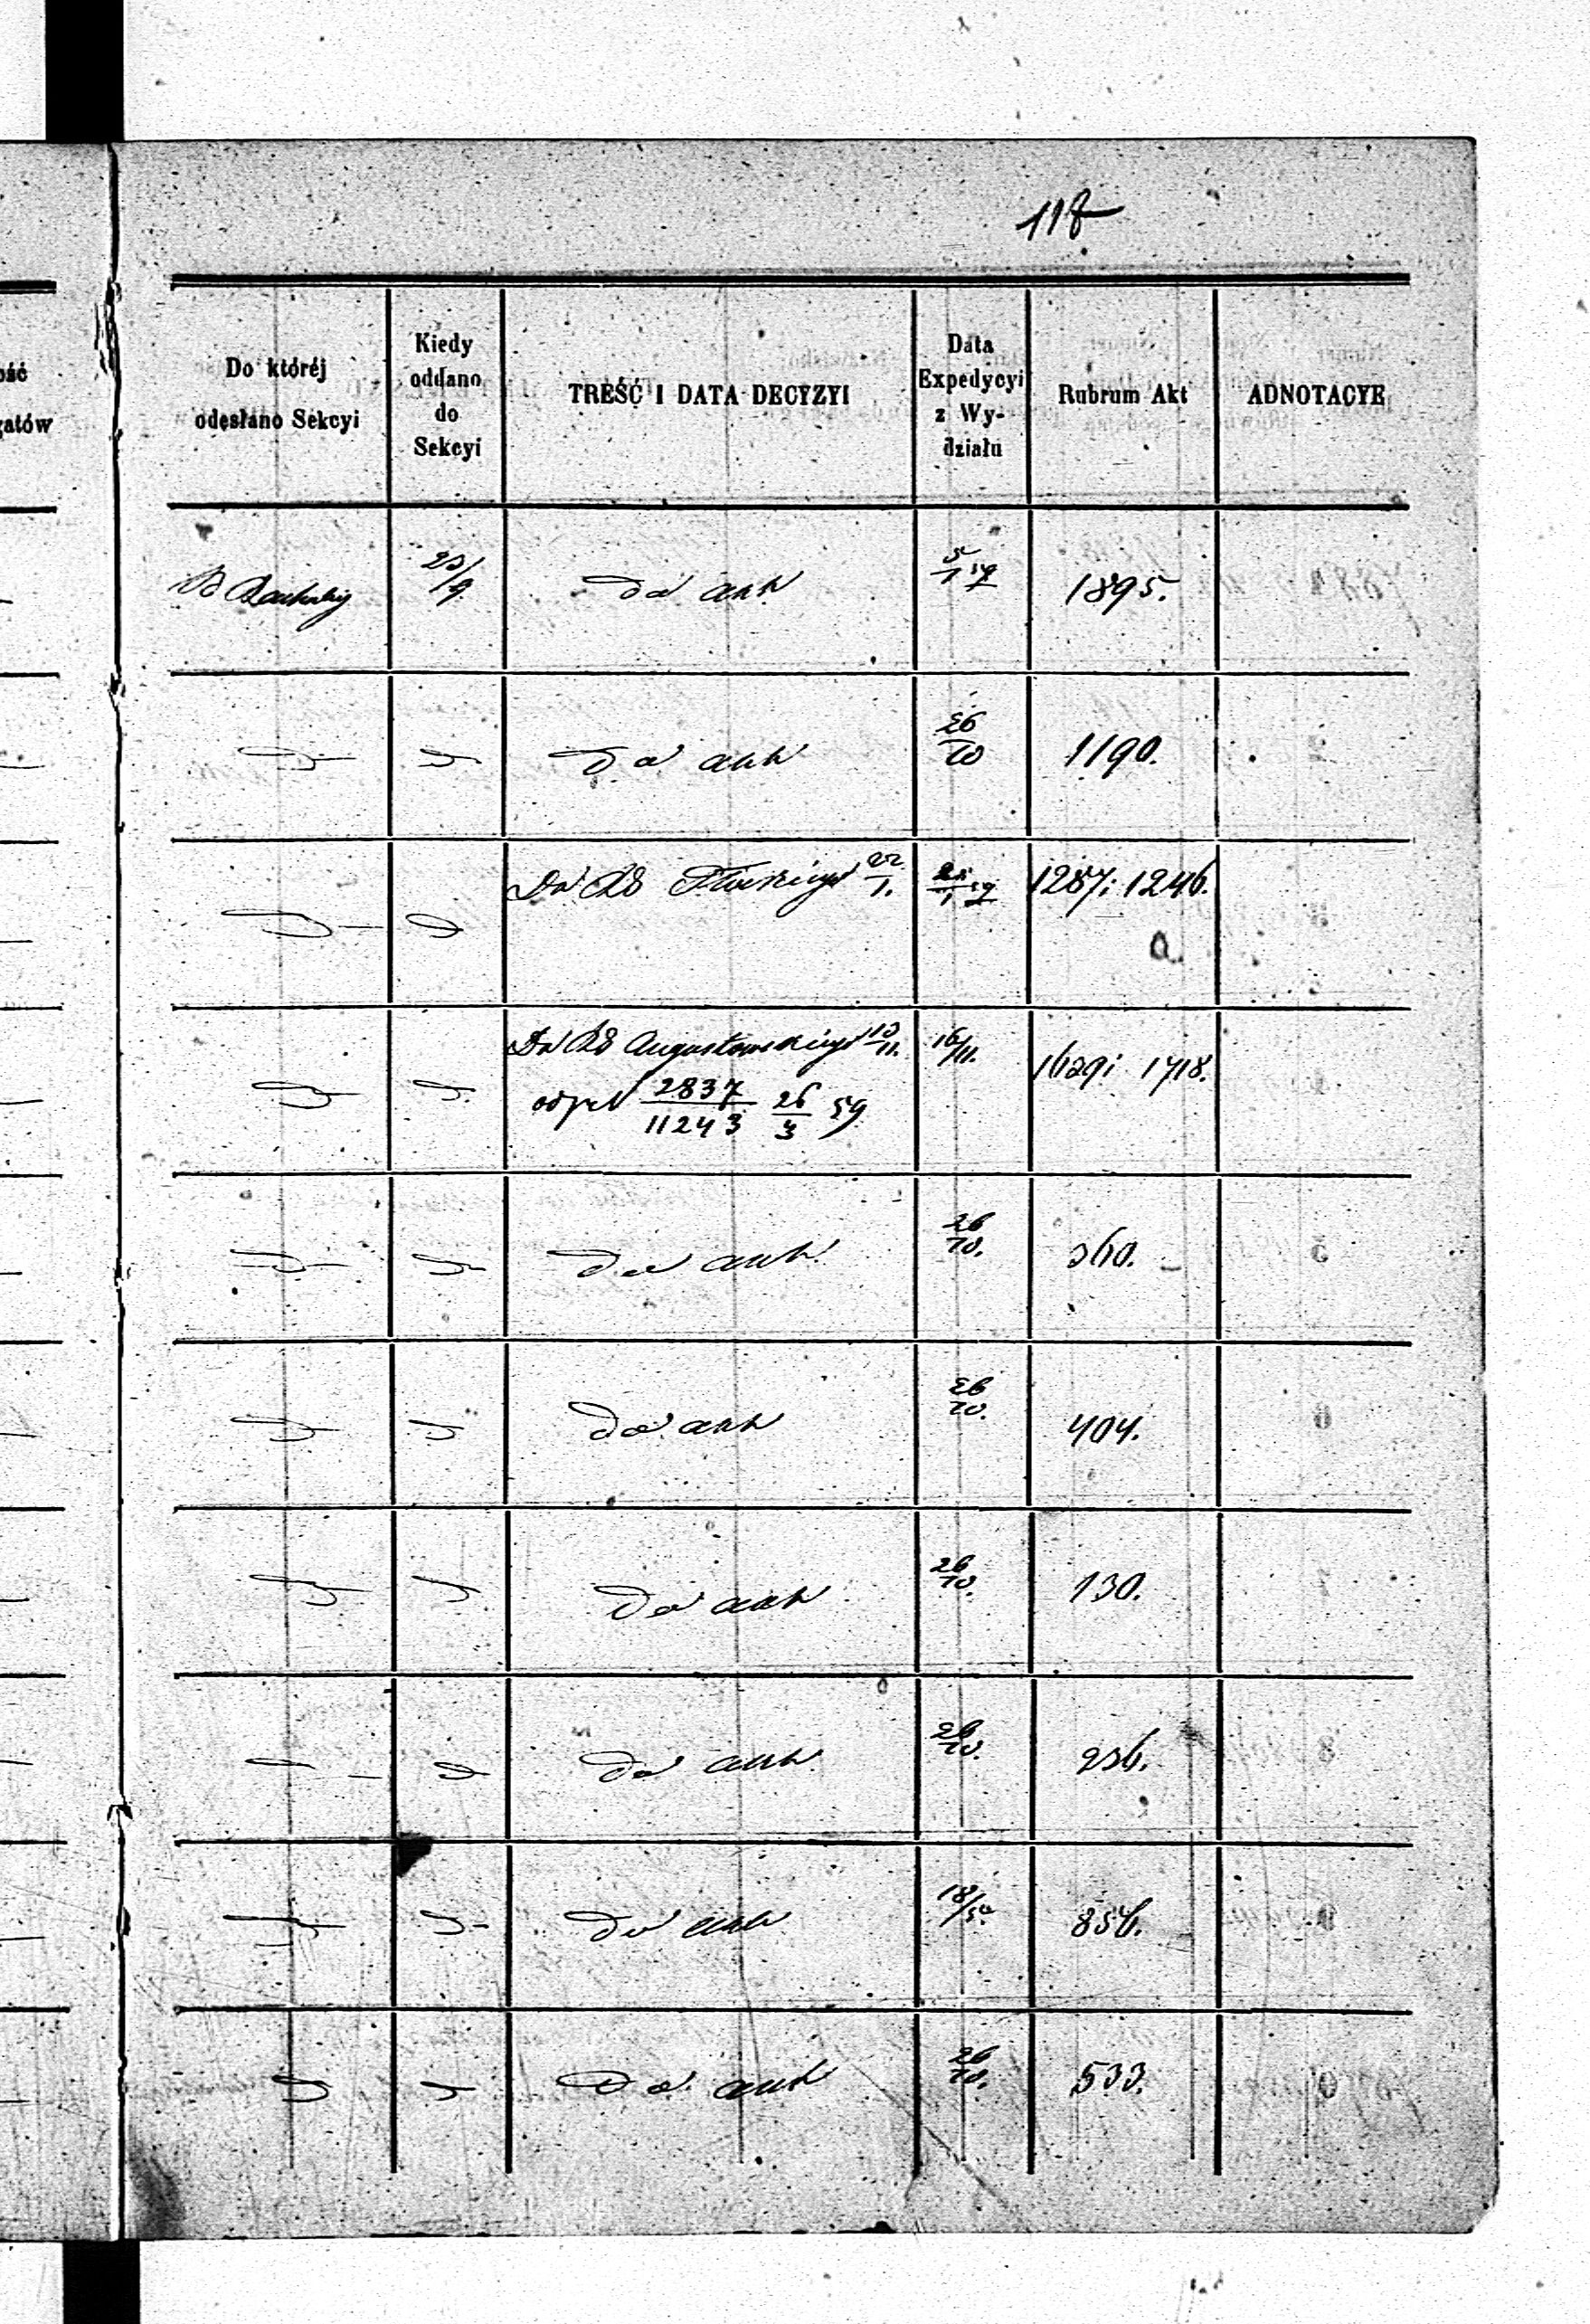 118
Do któréj
odesłano Sekcyi
Kiedy
oddano
do
Sekcyi
TREŚĆ I DATA DECYZYI
Data
Expedycyi
z Wy-
działu
Rubrum Akt
ADNOTACYE
23/9
do akt
5/1 59
1895.
do akt
26/10
1190.
Do RG Płockiego 22/1.
1287 i 1246.
a.
Do RG Augustowskiego 10/11.
16/11.
1629 i 1718.
2837/11243 26/3 59
do akt
26/10.
360.
do akt
26/10.
404.
do akt
26/10.
130.
do akt
26/10.
236.
do akt
18/50
856.
do akt
26/10.
533.